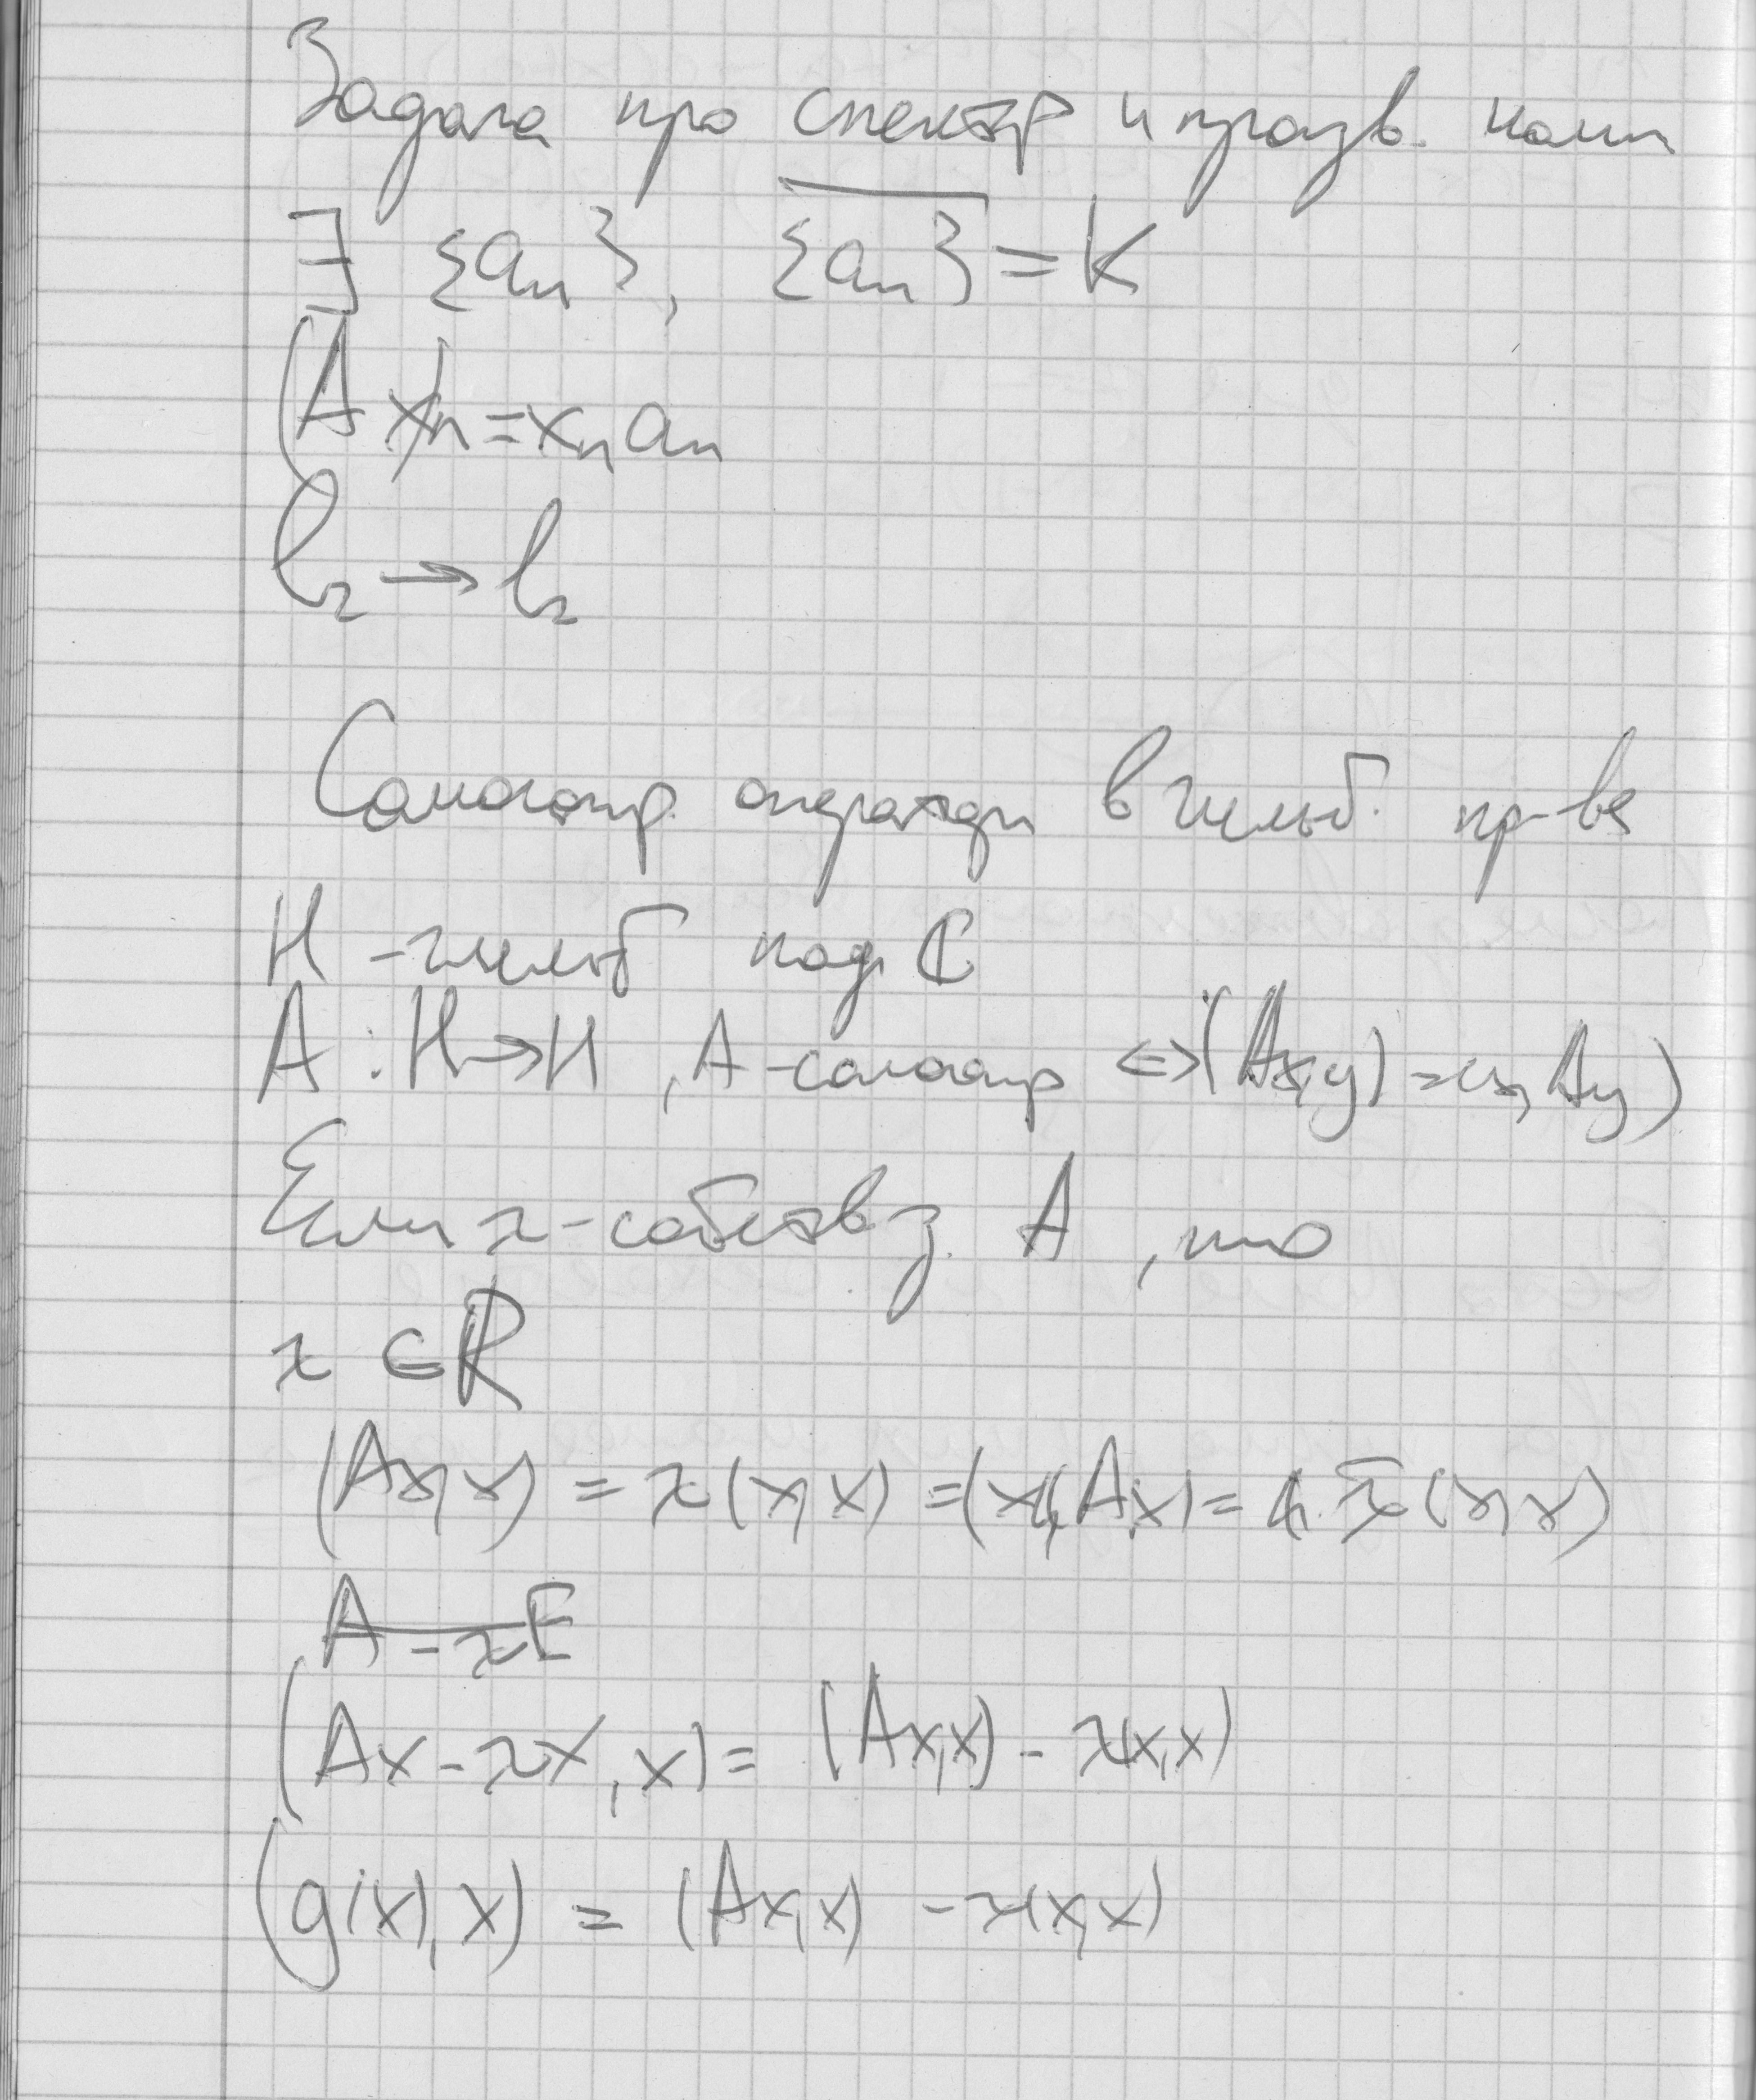 Задача про спектр и произв. комп
∃ {aₙ}, \overline{{aₙ}} = K
(Ax)ₙ = xₙaₙ
l₂ → l₂
Самосопр. операторы в гильб. пр-ве
H - гильб над ℂ
A : H → H, A - самосопр ⇔ (Ax,y) = (x, Ay)
Если λ - собств з. A, то
λ ∈ ℝ
(Ax,x) = λ(x,x) = (x,Ax) = \overline{λ}(x,x)
A - λE
(Ax - λx, x) = (Ax,x) - λ(x,x)
(g(x),x) = (Ax,x) - λ(x,x)